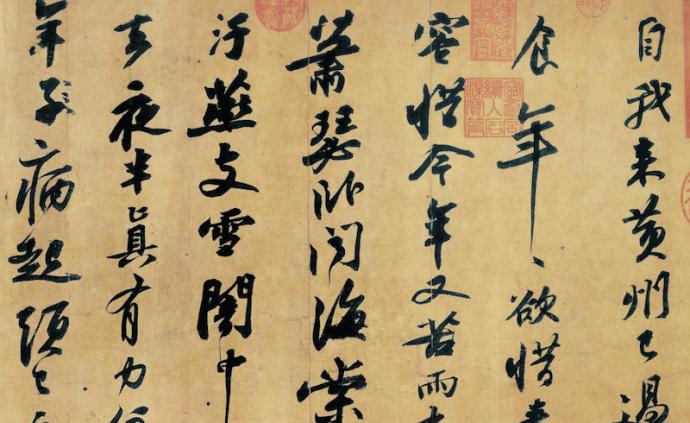 自我来黄州已過
食年〻欲惜
容惜今年又苦雨
蕭瑟卧聞海棠
汙燕支雪闇中
去夜半真有力
年子病起頭已